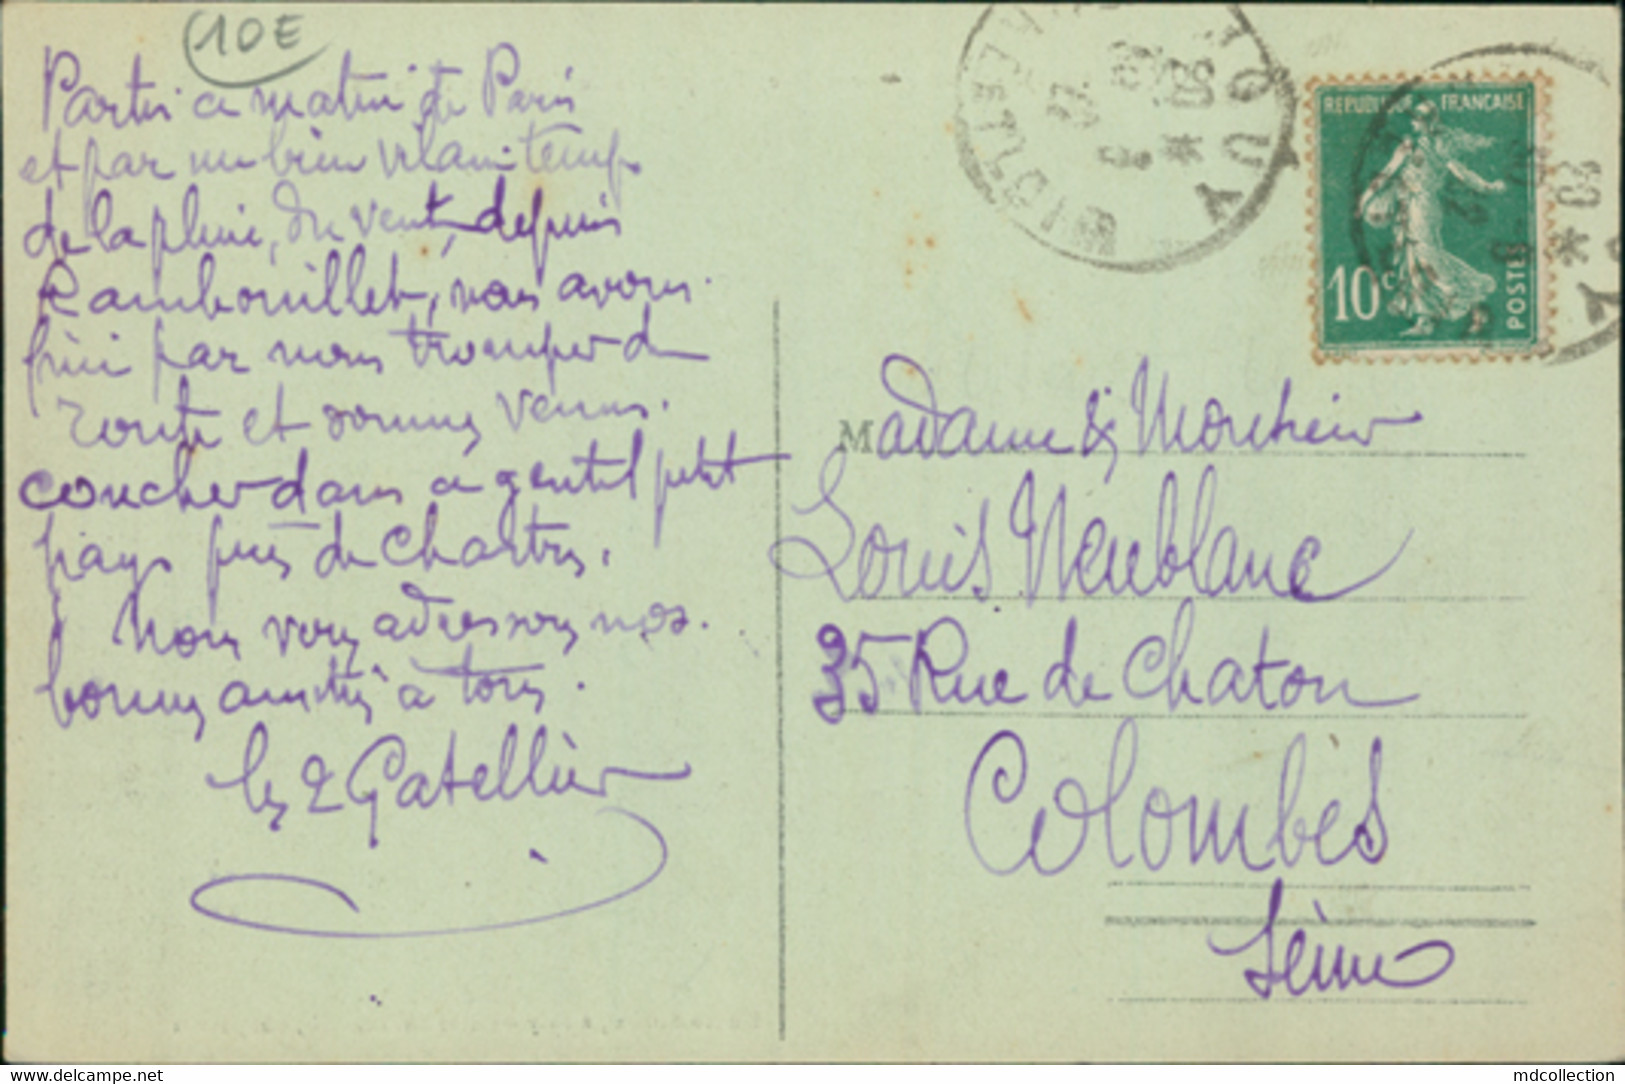 10E
Partis ce matin de Paris
et par un bien vilain temps
de la pluie, du vent, depuis
Rambouillet, nous avons
fini par nous tromper de
route et sommes venus
coucher dans ce gentil petit
pays près de Chartres.
Nous vous adressons nos
bonnes amitiés à tous.
les 2 Gatellier
JOUY
EURE-ET-LOIR
REPUBLIQUE FRANÇAISE
10c POSTES
Madame & Monsieur
Louis Neublanc
35 Rue de Chatou
Colombes
Seine
www.delcampe.net
mdcollection